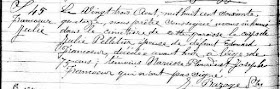 S. 45 Le vingt huit Aout, mil huit cent soixante
Francoeur gentier, nous prêtre soussigné avons inhumé
Julie dans le cimetière de cette paroisse le corps de
Julie Pelletier épouse de défunt Edouard
Francoeur, décédée avant hier à l'âge de
ans; témoins Narcisse Joseph
Francoeur qui n'ont pas signé.
Ptre